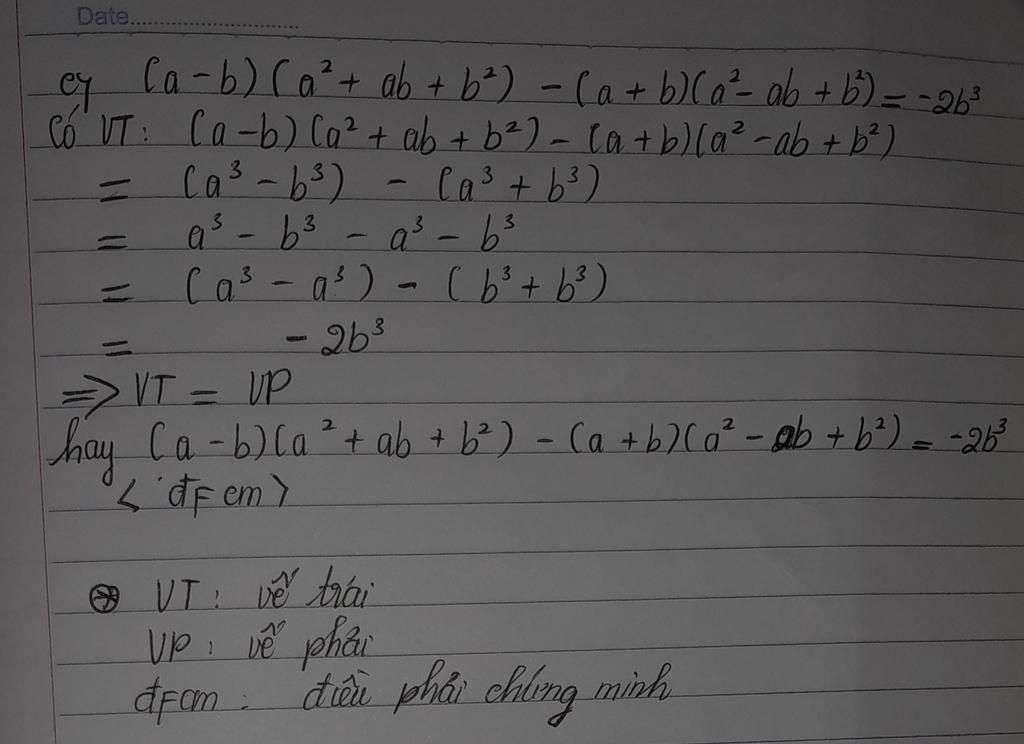 Date..............................
c, (a - b)(a² + ab + b²) - (a + b)(a² - ab + b²) = -2b³
Có VT: (a - b)(a² + ab + b²) - (a + b)(a² - ab + b²)
= (a³ - b³) - (a³ + b³)
= a³ - b³ - a³ - b³
= (a³ - a³) - (b³ + b³)
= - 2b³
=> VT = VP
hay (a - b)(a² + ab + b²) - (a + b)(a² - ab + b²) = -2b³
< đpcm >
⊛ VT: vế trái
VP: vế phải
đpcm: điều phải chứng minh